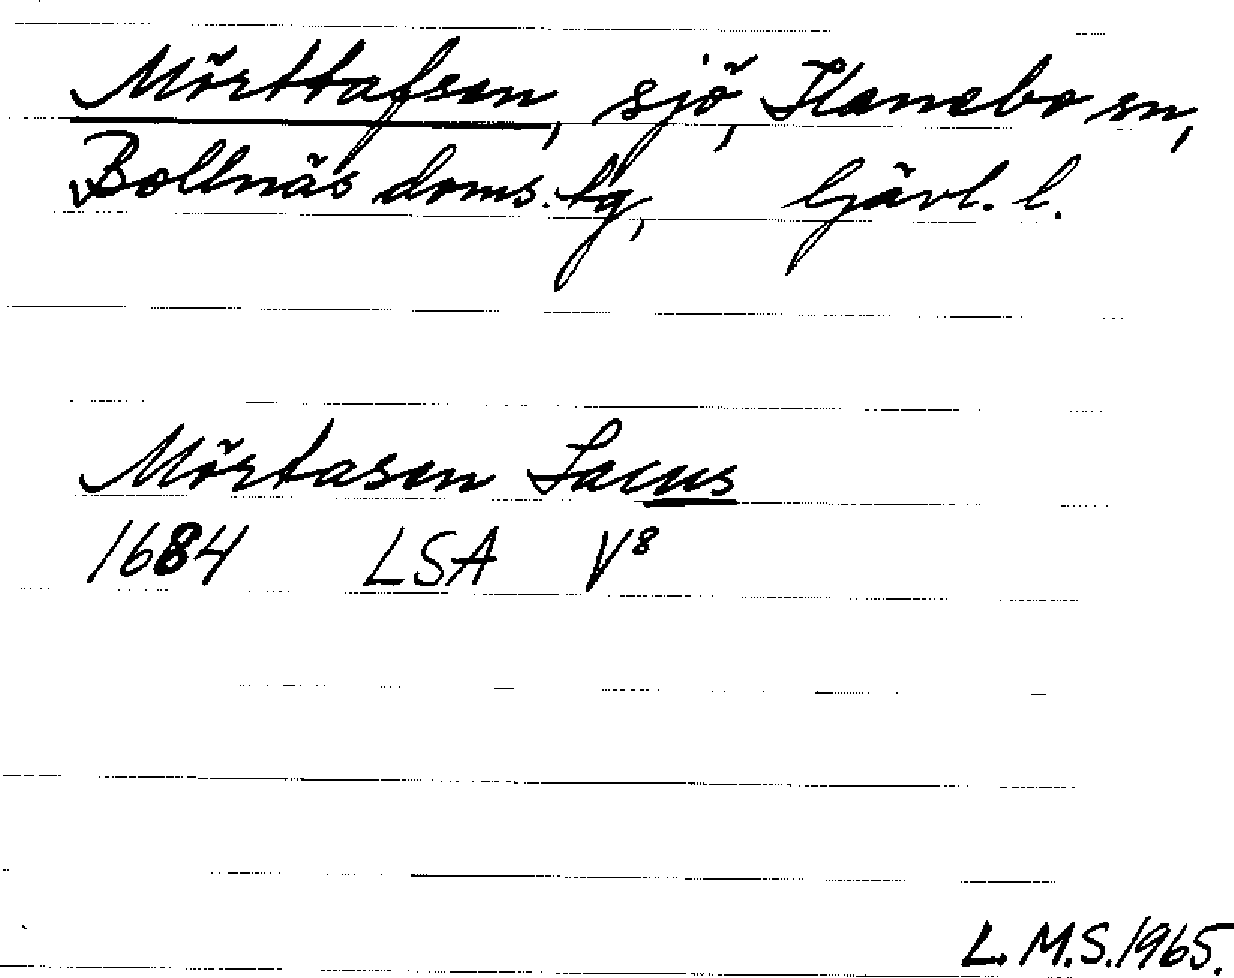 Mörttafsen, sjö, Hanebo sn,
Bollnäs doms. tg, Gävl. l.
Mörtasen Lacus
1684 LSA V⁸
L. M.S. 1965.